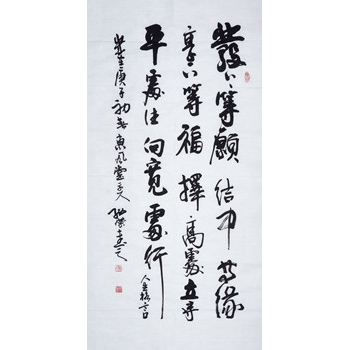 發上等願結中等緣
享下等福擇高處立尋
平處住向寬處行 人生格言
歲在庚子初春東風堂主人